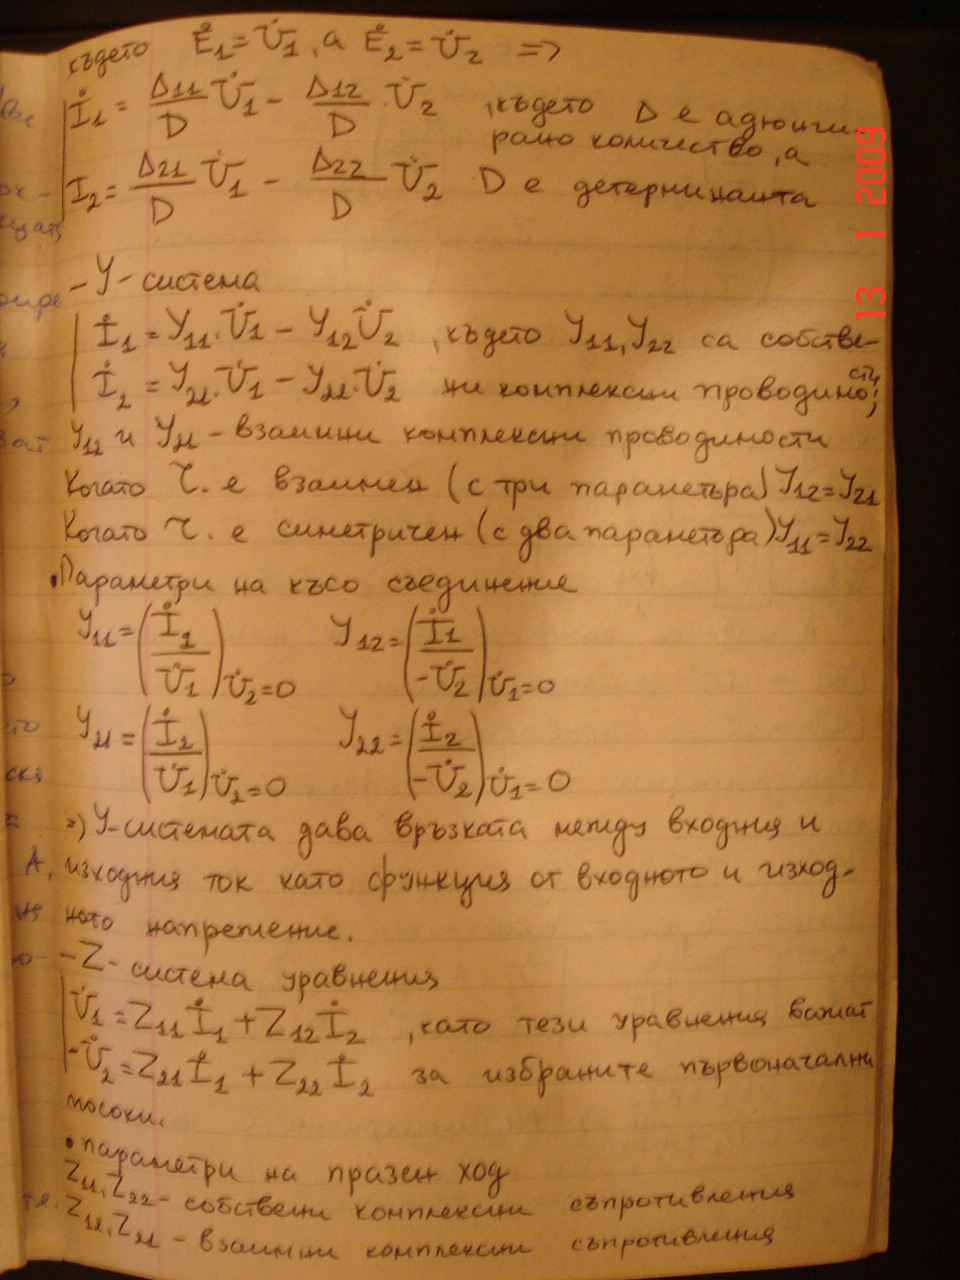 където Ė1 = U̇1, а Ė2 = U̇2 =>
İ1 = Δ11/D U̇1 - Δ12/D · U̇2 , където D е адюнги-
рано количество, а
I2 = Δ21/D U̇1 - Δ22/D U̇2 D е детерминанта
- Y - система
İ1 = Y11. U̇1 - Y12 U̇2 , където Y11, Y22 са собстве-
İ2 = Y21. U̇1 - Y22. U̇2 ни комплексни проводимости;
Y12 и Y21 - взаимни комплексни проводимости
Когато Ч. е взаимен (с три параметъра) Y12 = Y21
Когато Ч. е симетричен (с два параметъра) Y11 = Y22
• Параметри на късо съединение
Y11 = (İ1/U̇1) U̇2=0 Y12 = (İ1/-U̇2) U̇1=0
Y21 = (İ2/U̇1) U̇2=0 Y22 = (İ2/-U̇2) U̇1=0
=> Y-системата дава връзката между входния и
изходния ток като функция от входното и изход-
ното напрежение.
- Z - система уравнения
U̇1 = Z11 İ1 + Z12 İ2 , като тези уравнения важат
-U̇2 = Z21 İ1 + Z22 İ2 за избраните първоначални
посоки.
• параметри на празен ход
Z11, Z22 - собствени комплексни съпротивления
Z12, Z21 - взаимни комплексни съпротивления
13 1 2009